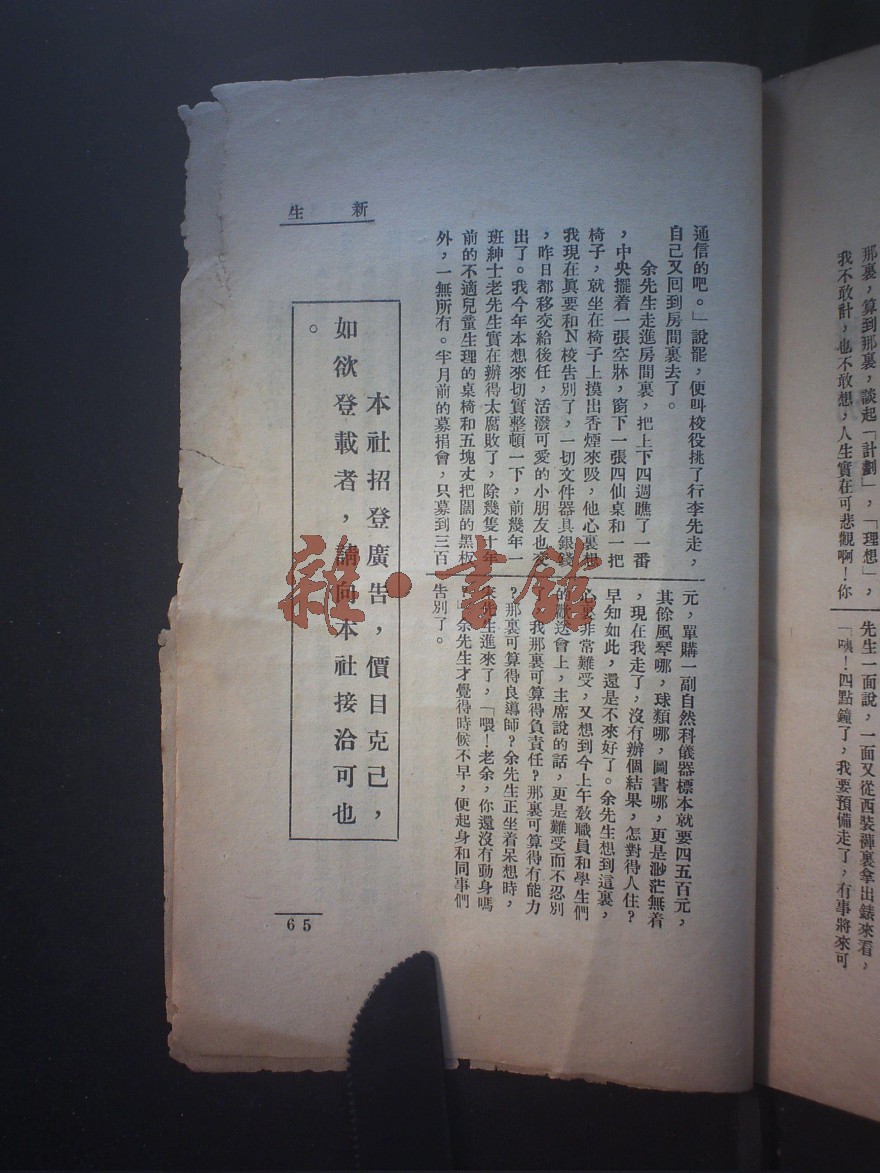 那裏，算到那裏，談起「計劃」，「理想」，
我不敢計，也不敢想，人生實在可悲觀啊！你
先生一面說，一面又從西裝褲裏拿出錶來看，
「咦！四點鐘了，我要預備走了，有事將來可
通信的吧。」說罷，便叫校役挑了行李先走，
自己又回到房間裏去了。
余先生走進房間裏，把上下四週瞧了一番
，中央擺着一張空牀，窗下一張四仙桌和一把
椅子，就坐在椅子上摸出香煙來吸，他心裏想
我現在眞要和N校吿別了，一切文件器具銀錢
，昨日都移交給後任，活潑可愛的小朋友也交
出了。我今年本想來切實整頓一下，前幾年一
班紳士老先生實在辦得太腐敗了，除幾隻十年
前的不適兒童生理的桌椅和五塊丈把闊的黑板
外，一無所有。半月前的募捐會，只募到三百
元，單購一副自然科儀器標本就要四五百元，
其餘風琴哪，球類哪，圖書哪，更是渺茫無着
，現在我走了，沒有辦個結果，怎對得人住？
早知如此，還是不來好了。余先生想到這裏，
心裏非常難受，又想到今上午敎職員和學生們
的歡送會上，主席說的話，更是難受而不忍別
？我那裏可算得負責任？那裏可算得有能力
？那裏可算得良導師？余先生正坐着呆想時，
來先生進來了，「喂！老余，你還沒有動身嗎
？」余先生才覺得時候不早，便起身和同事們
吿別了。
新生
本社招登廣告，價目克己，
如欲登載者，請向本社接洽可也
。
65
雜·書館